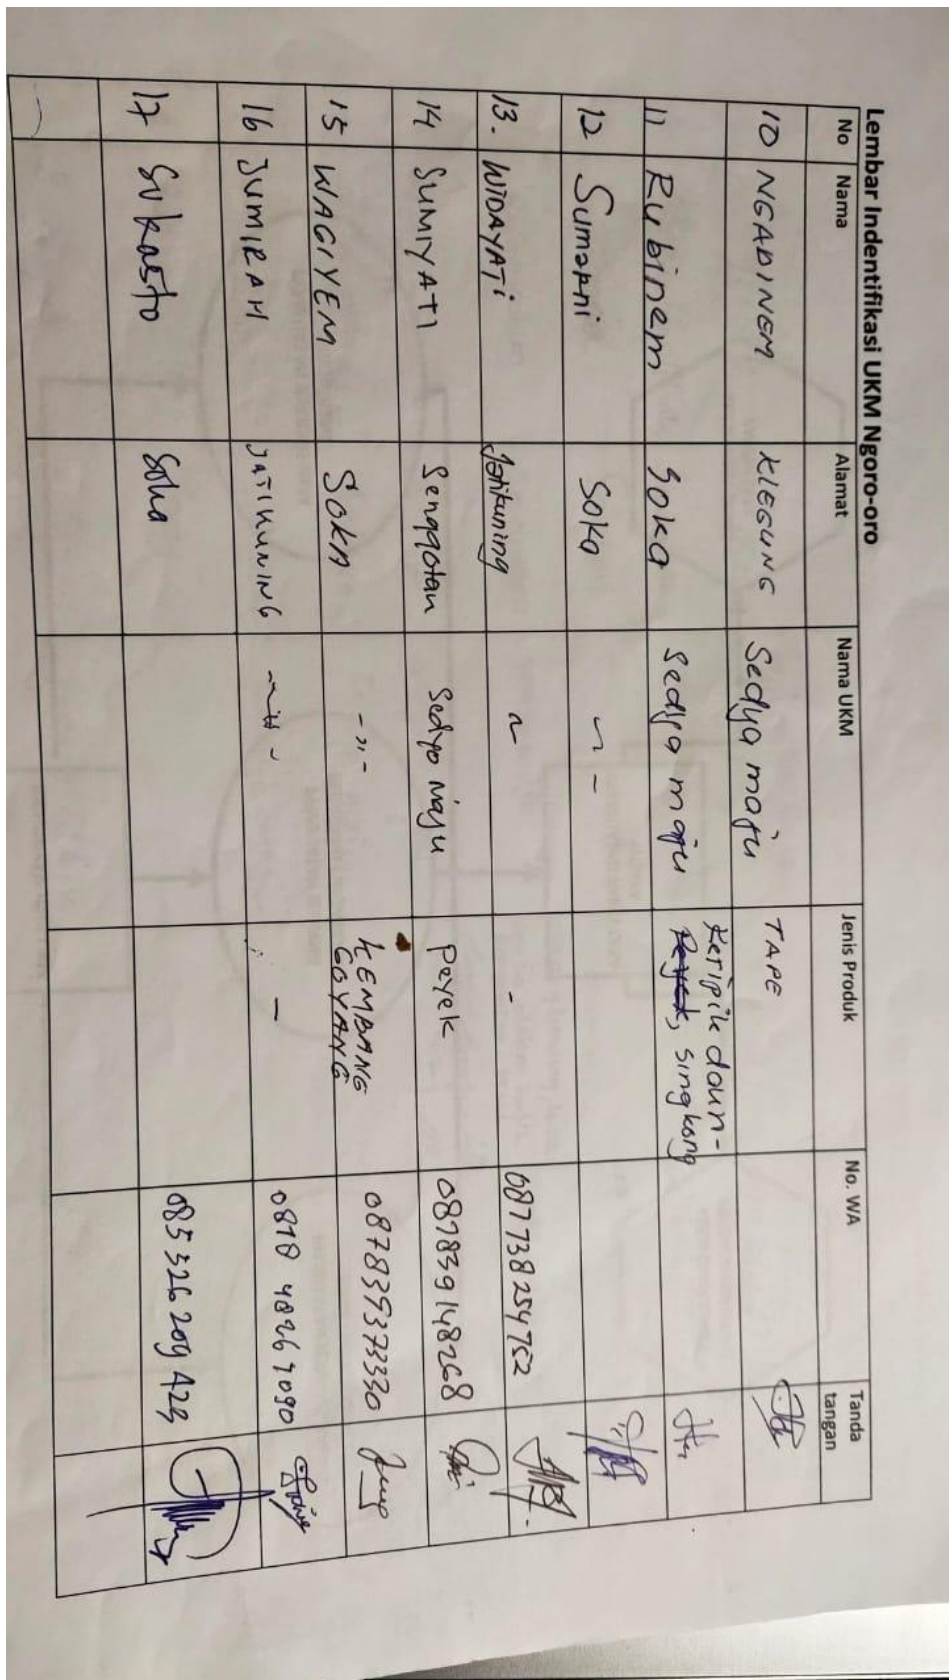 Lembar Indentifikasi UKM Ngoro-oro
No Nama Alamat Nama UKM Jenis Produk No. WA Tanda tangan
10 NGADINEM KLEGUNG Sedya maju TAPE
11 Rubinem Soka Sedya maju Keripik daun- singkong
12 Sumarni Soka ~ -
13. WIDAYATi Jatikuning ~ - 087738254752
14 SUMIYATI Senggotan Sedyo Maju Peyek 087839148268
15 WAGIYEM SOKA -"- KEMBANG GOYANG 087839373330
16 JUMIRAH JATIKUNING -"- - 0818 48269090
17 Sukasto Soka 085326209423